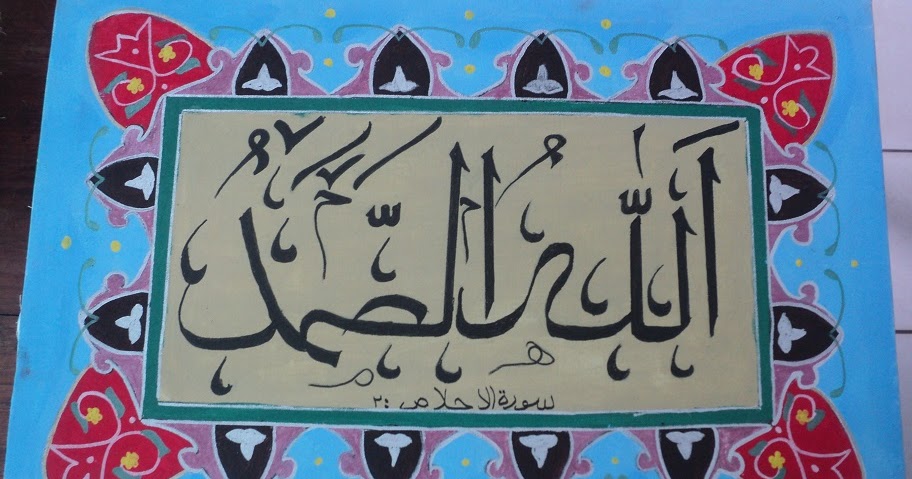 اَللّٰهُ الصَّمَدُ
سورة الاخلاص :٢